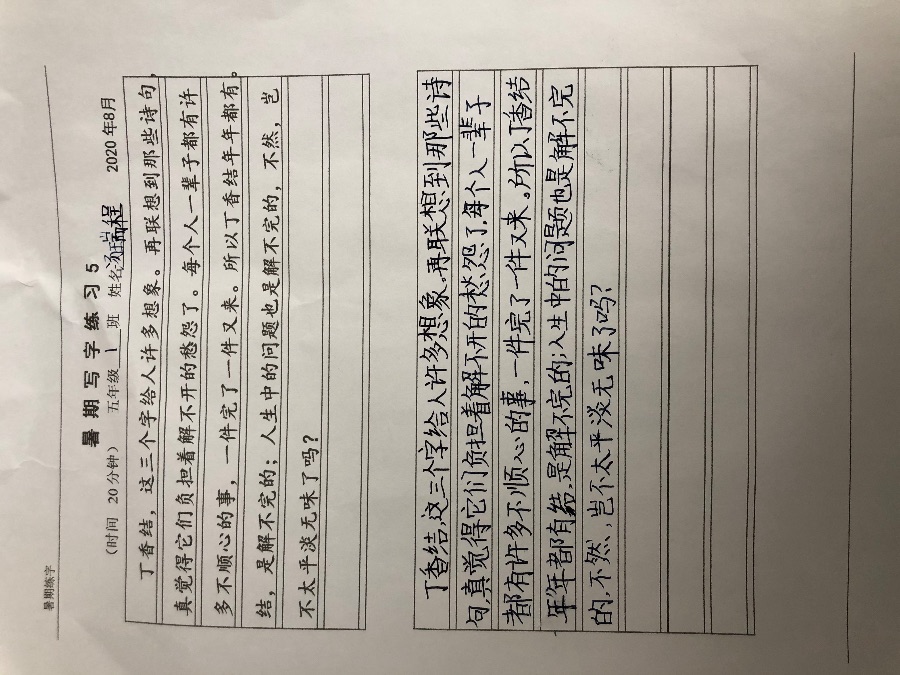 暑期练字
暑期写字练习5
(时间 20分钟) 五年级 1 班 姓名:汤瑞程 2020年8月
丁香结，这三个字给人许多想象。再联想到那些诗句，
真觉得它们负担着解不开的愁怨了。每个人一辈子都有许
多不顺心的事，一件完了一件又来。所以丁香结年年都有。
结，是解不完的；人生中的问题也是解不完的，不然，岂
不太平淡无味了吗？
丁香结,这三个字给人许多想象。再联想到那些诗
句,真觉得它们负担着解不开的愁怨了,每个人一辈子
都有许多不顺心的事,一件完了一件又来。所以丁香结
年年都有结,是解不完的;人生中的问题也是解不完
的,不然、岂不太平淡无味了吗?